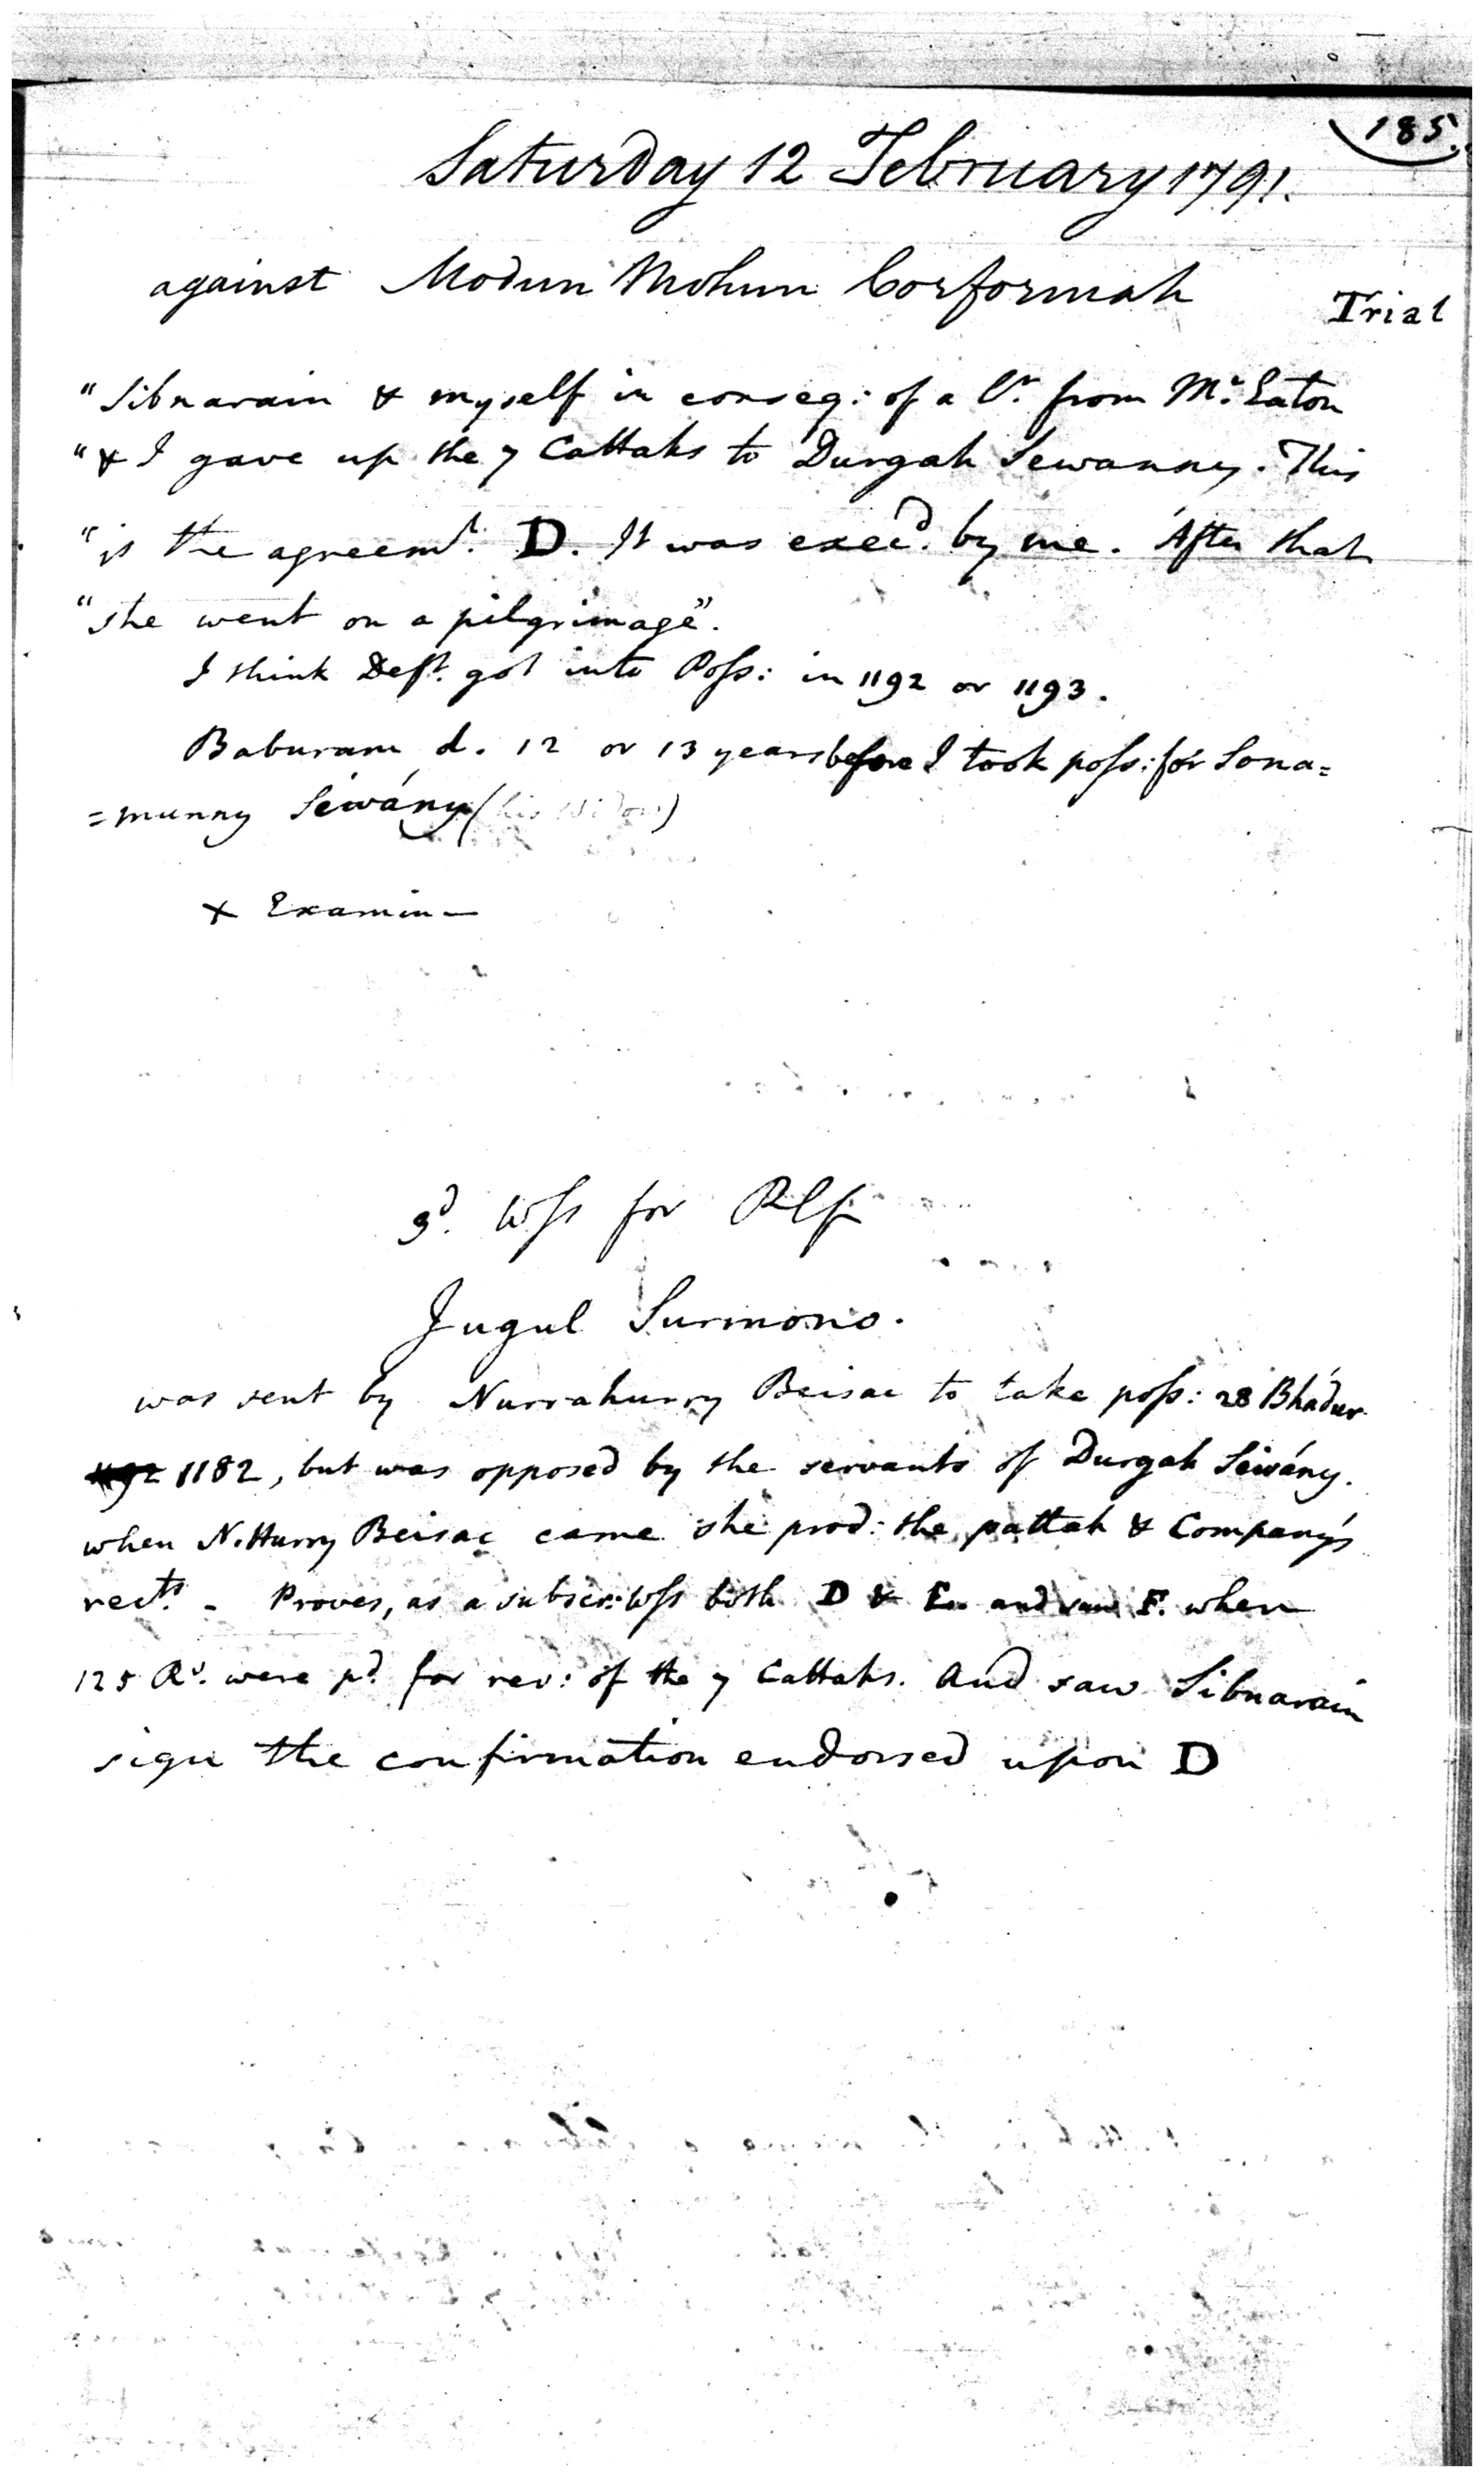 185.
Saturday 12 February 1791.
against Modun Mohun Corformah
Trial
"Sibnarain & myself in conseq: of a lr. from Mr. Eaton
"& I gave up the 7 Cattahs to Durgah Sewanny. This
"is the agreemt. D. It was execd. by me. After that
"she went on a pilgrimage".
I think Deft. got into Poss: in 1192 or 1193.
Baburam d. 12 or 13 years before I took poss: for Sona=
=munny Sewány (his widow)
+ Examin—
3d. Wss for Plf
Jugul Surmono.
was sent by Nurrahurry Beisac to take poss: 28 Bhádur
1192 1182, but was opposed by the servants of Durgah Sewány.
when N. Hurry Beisac came she prod: the pattah & Company's
rects. - Proves, as a subscr: Wss both D & E. and saw F. when
125 Rs. were pd. for rev: of the 7 Cattahs. And saw Sibnarain
sign the confirmation endorsed upon D